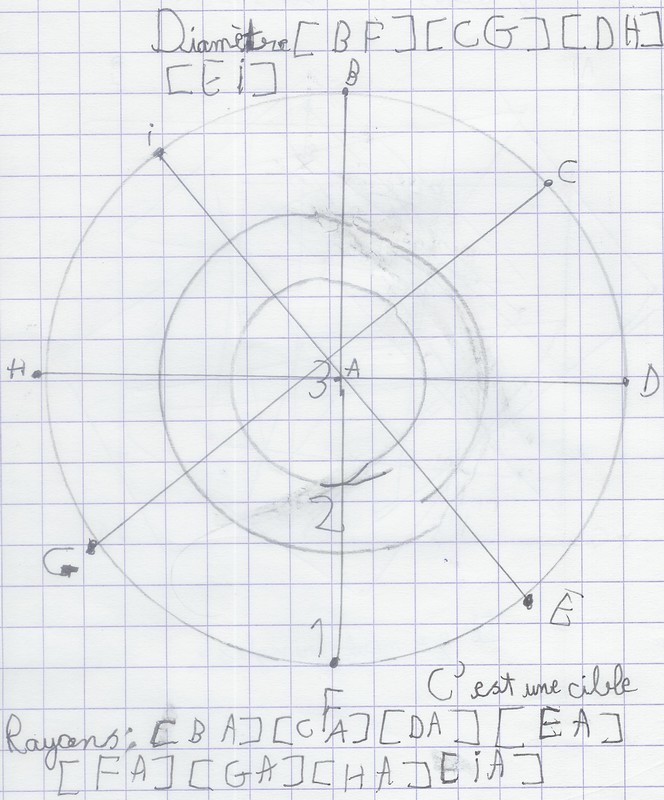 Diamètre [BF][CG][DH]
[Ei]
B
i
C
H
3
A
D
2
G
E
1
F
C'est une cible
Rayons: [BA][CA][DA][EA]
[FA][GA][HA][iA]